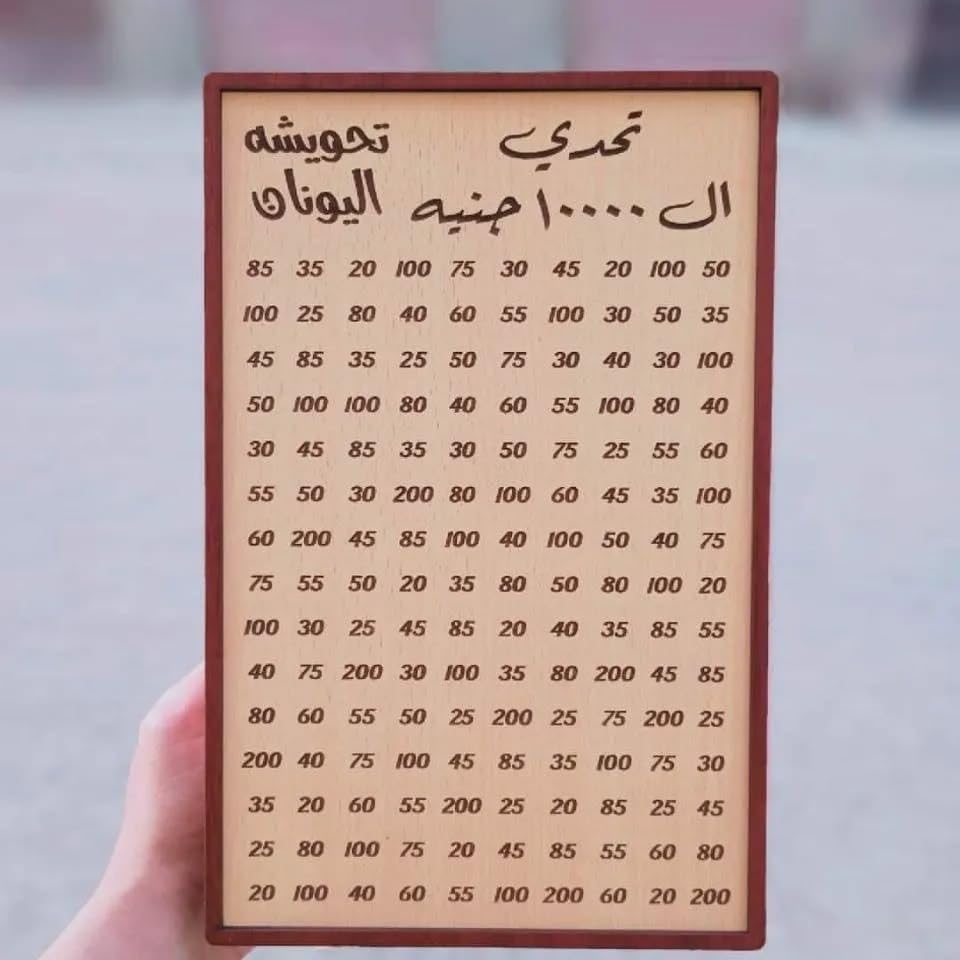 تحدي
ال ١٠٠٠٠ جنيه
تحويشه
اليونان
85 35 20 100 75 30 45 20 100 50
100 25 80 40 60 55 100 30 50 35
45 85 35 25 50 75 30 40 30 100
50 100 100 80 40 60 55 100 80 40
30 45 85 35 30 50 75 25 55 60
55 50 30 200 80 100 60 45 35 100
60 200 45 85 100 40 100 50 40 75
75 55 50 20 35 80 50 80 100 20
100 30 25 45 85 20 40 35 85 55
40 75 200 30 100 35 80 200 45 85
80 60 55 50 25 200 25 75 200 25
200 40 75 100 45 85 35 100 75 30
35 20 60 55 200 25 20 85 25 45
25 80 100 75 20 45 85 55 60 80
20 100 40 60 55 100 200 60 20 200